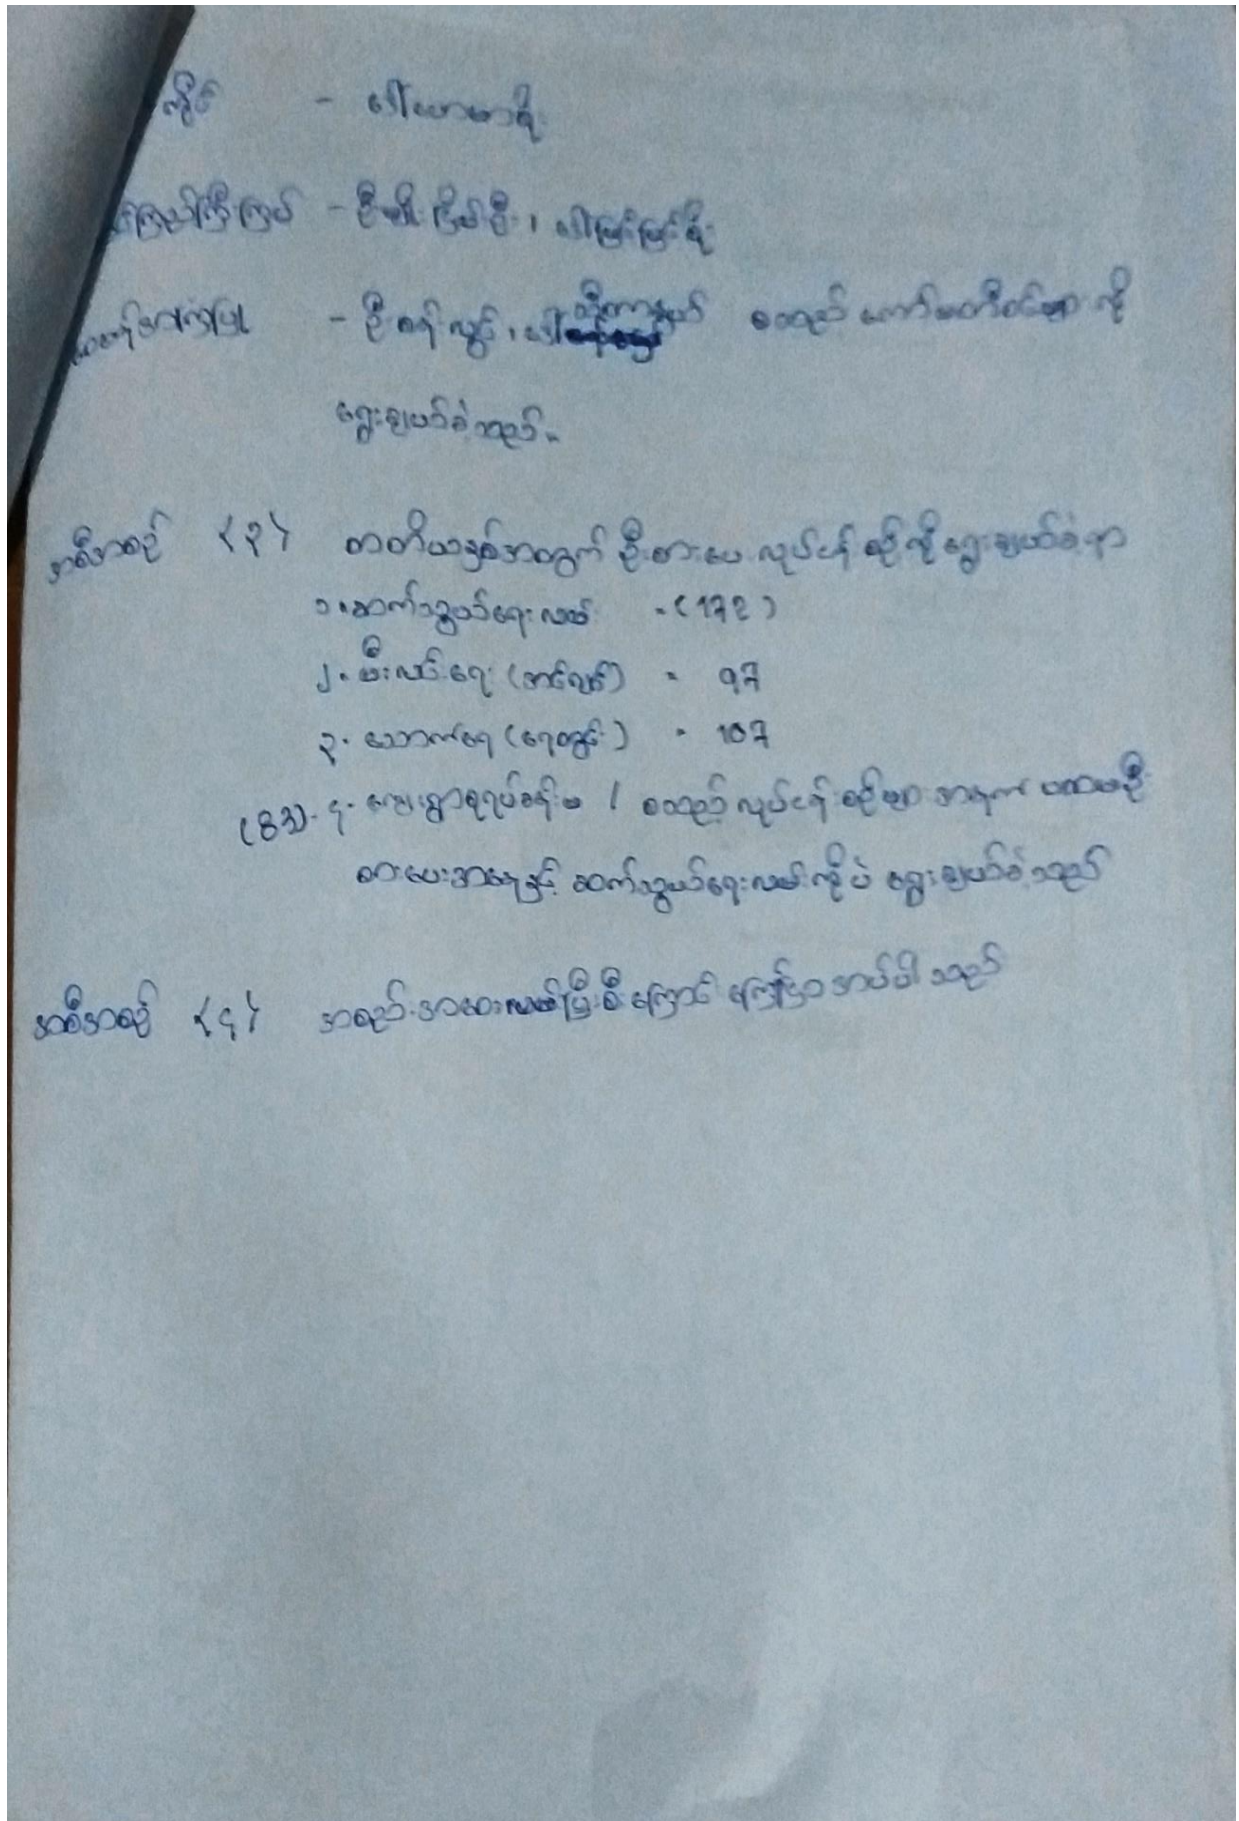 ကိုင် - ဒေါ်ယောမာရီ
ကြည့်ကြီးကြပ် - ဦးကျော်ငြိမ်းဦး ၊ ဒေါ်မြင့်မြင့်စိုး
- ဦးစန်းလွင် ၊ ဒေါ် သီတာနွယ် စသည့် ကော်မတီဝင်များ ကို
ရွေးချယ်ခဲ့သည်။
အစီအစဉ် (၃) တတိယနှစ်အတွက် ဦးစားပေး လုပ်ငန်း စဉ် ကို ရွေးချယ်ခဲ့ရာ
၁။ ဆက်သွယ်ရေး လမ်း = (172)
၂။ မီးလင်းရေး (အင်ဂျင်) = 97
၃။ သောက်ရေ (ရေတွင်း) = 107
(83)- ၄။ ကျေးရွာစုရပ်ခန်းမ / စသည့် လုပ်ငန်း စဉ်များ အနက် ပထမဦး
စားပေးအနေနှင့် ဆက်သွယ်ရေးလမ်းကိုပဲ ရွေးချယ်ခဲ့သည်
အစီအစဉ် (၄) အစည်းအဝေးပြီးစီးကြောင်း ကြေငြာအပ်ပါသည်